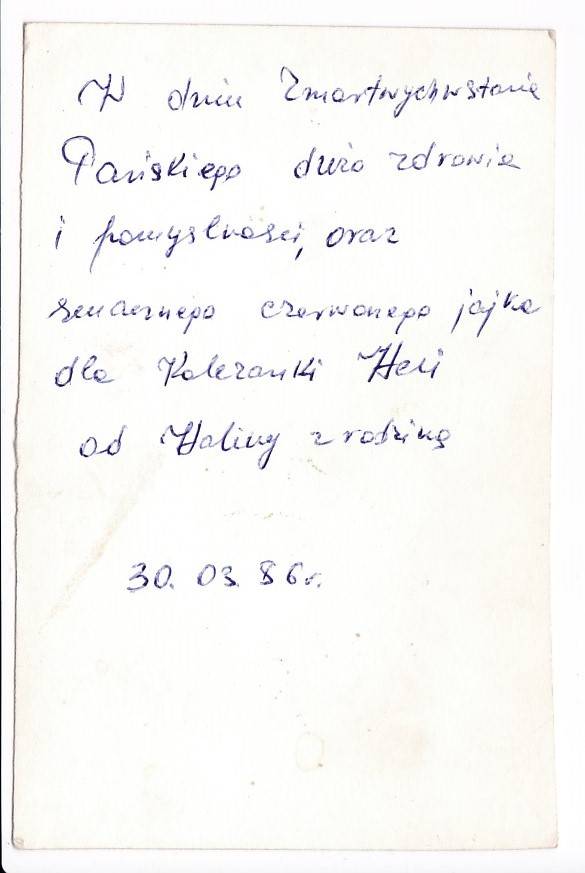 W dniu Zmartwychwstania
Pańskiego dużo zdrowia
i pomyślności, oraz
smacznego czerwonego jajka
dla Koleżanki Heli
od Haliny z rodziną
30. 03. 86 r.